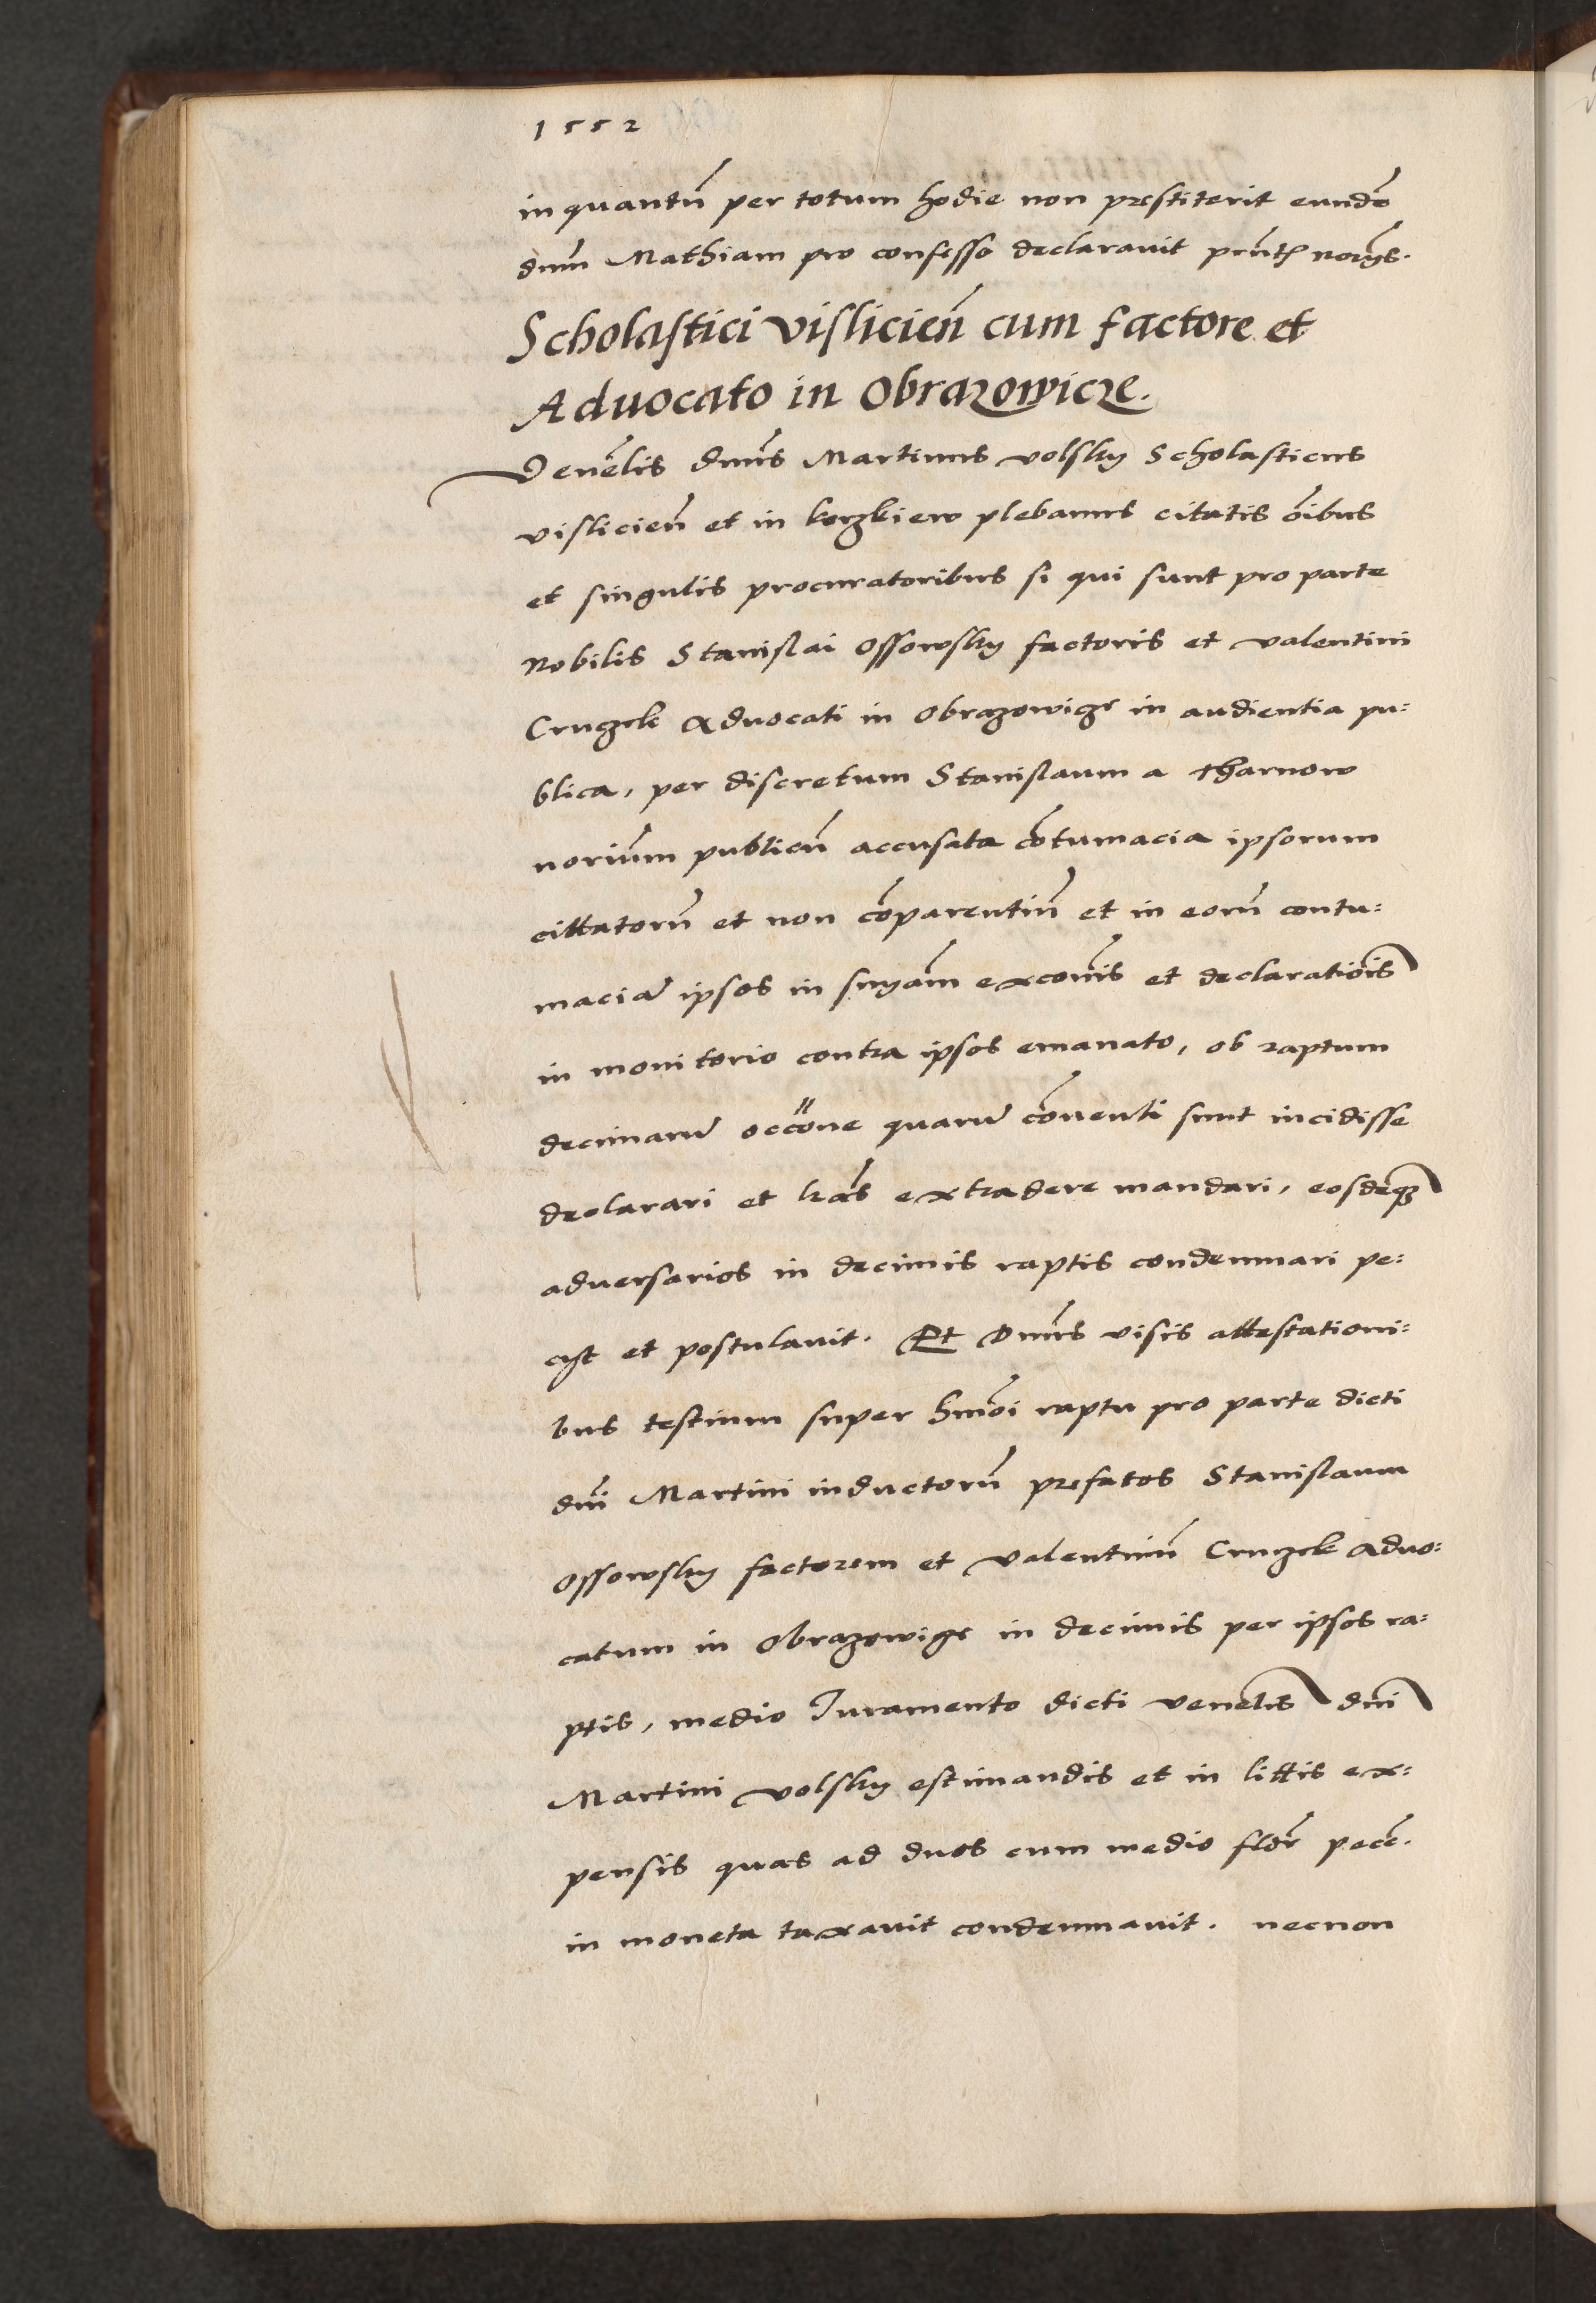 1552
in quantu͂ per totum hodie non prestiterit eunde͂
dnu͂m Mathiam pro confesso declarauit pr͂ntr notr͂ys.
Scholastici Vislicien͂ cum factore et
Aduocato in Obrazowicze.
Vene͂lis dnu͂s Martinus Volsky Scholasticus
Vislicien͂ et in korzkiew plebanus citatis o͂ibus
et singulis procuratoribus si qui sunt pro parte
Nobilis Stanislai Ossowsky factoris et Valentini
Cruzek Aduocati in Obrazowicze in audientia pu:
blica, per discretum Stanislaum a Tharnow
noriu͂m publicu͂ accusata co͂tumacia ipsorum
cittatoru͂ et non co͂parentiu͂ et in eoru͂ contu:
macia͂ ipsos in sn͂yam excoi͂s et declaratio͂is
in monitorio contra ipsos emanato, ob raptum
decimaru͂ occo͂ne quaru͂ co͂uenti sunt incidisse
declarari et lra͂s extradere mandari, eosdeq͂
aduersarios in decimis raptis condemnari pe:
cyt et postulauit. Et Dnu͂s visis attestationi:
bus testium super hmo͂i raptu pro parte dicti
dni͂ Martini inductoru͂ prefatos Stanislaum
Ossowsky factorem et Valentinu͂ Cruzek Aduo:
catum in Obrazowicze in decimis per ipsos ra:
ptis, medio Iuramento dicti Vene͂lis dni͂
Martini Volsky estimandis et in littis ex:
pensis quas ad duos cum medio flor͂ pece͂.
in moneta taxauit condemnauit. necnon